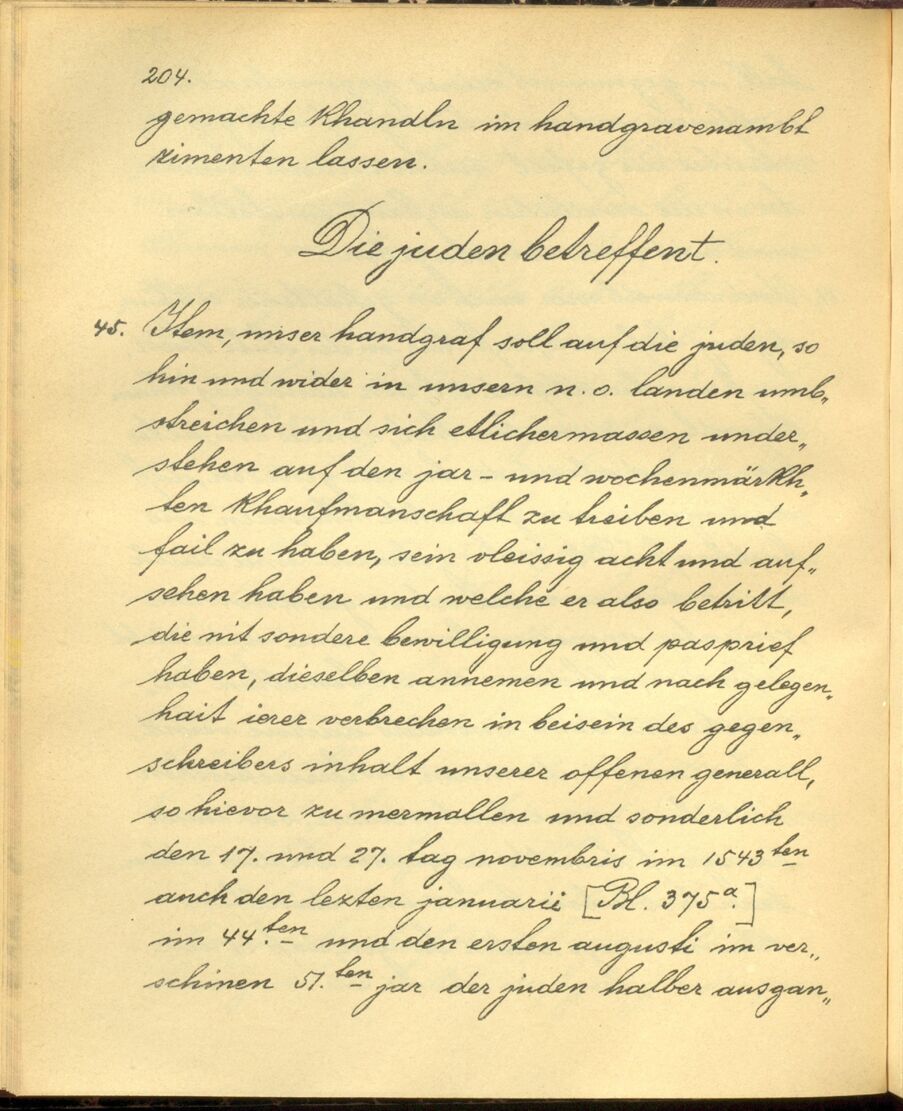 204.
gemachte khandln im handgravenambt
zimenten lassen.
Die juden betreffent.
45. Item, unser handgraf soll auf die juden, so
hin und wider in unsern n. o. landen umb„
streichen und sich etlichermassen under„
stehen auf den jar- und wochenmärkh„
ten khaufmanschaft zu treiben und
fail zu haben, sein vleissig acht und auf„
sehen haben und welche er also betritt,
die nit sondere bewilligung und pasprief
haben, dieselben annemen und nach gelegen„
hait ierer verbrechen in beisein des gegen„
schreibers inhalt unserer offenen generall,
so hievor zu mermallen und sonderlich
den 17. und 27. tag novembris im 1543ten
auch den lezten januarii [Bl. 375a.]
im 44.ten und den ersten augusti im ver„
schinen 51.ten jar der juden halber ausgan„